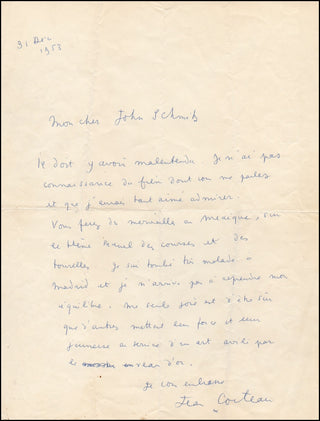 31 Dec
1953
Mon cher John Schmitz
Il doit y avoir malentendu. Je n'ai pas
connaissance du film dont vous me parlez
et que j'aurais tant aimé admirer.
Vous ferez des merveilles au Mexique, sur
le thème des courses et des
tourelles. Je suis tombé très malade à
Madrid et je n'arrive pas à reprendre mon
équilibre. Ma seule joie est d'être sûr
que d'autres mettent leur force et leur
jeunesse au service d'un art avili par
le veau d'or.
Je vous embrasse
Jean Cocteau